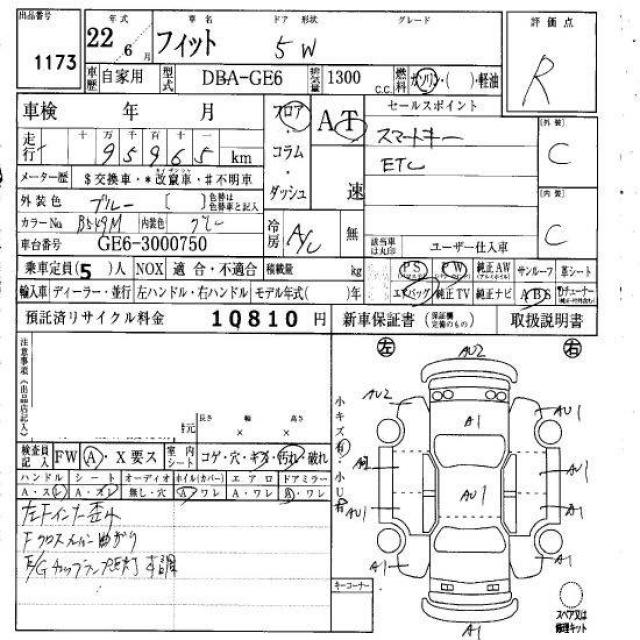 出品番号 1173
年式 22 年 6 月
車名 フィット
ドア 形状 5W
グレード
評価点 R
車歴 自家用
型式 DBA-GE6
排気量 1300 c.c.
燃料 ガソリン・( )・軽油
車検 年 月
フロア・コラム・ダッシュ
AT 速
セールスポイント
スマートキー
ETC
外装 C
内装 C
走行 十万千百十一
95965 km
メーター歴 $交換車・*改竄車・#不明車
外装色 ブルー [ ] 色替は色替車と記入
カラーNo B549M 内装色 グレー
冷房 A/C 無
該当車は丸印 ユーザー仕入車
車台番号 GE6-3000750
乗車定員(5)人 NOX 適合・不適合 積載量 kg
PS PW 純正AW サンルーフ 革シート
輸入車 ディーラー・並行 左ハンドル・右ハンドル モデル年式( )年
エアバッグ 純正TV 純正ナビ ABS
預託済リサイクル料金 10810 円
新車保証書 (保証欄定備のもの) 取扱説明書
注意事項(出品店記入)
長さ 幅 高さ
× ×
検査員記入 FW A・X要ス 室内シート コゲ・穴・キズ・汚れ・破れ
ハンドル シート オーディオ ホイル(カバー) エアロ ドアミラー
A・スレ A・スレ 無し・穴 A・ワレ A・ワレ A・ワレ
左Fインナー歪み
Fクロスメンバー曲がり
E/Gカップランプ点灯 不調
キーコーナー
小キズ有・小U有
左 右
AU2
AU2
A1
AU1
AU1
AU1
AU1
A1
A1
A1
A1
スペア又は修理キット